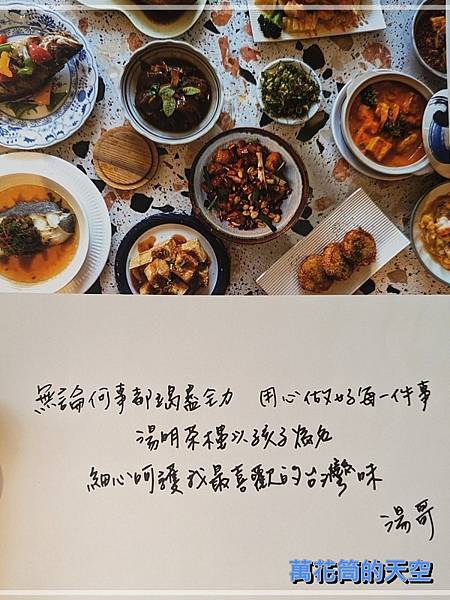 無論何事都竭盡全力 用心做好每一件事
湯明茶樓以孩子為名
細心呵護我最喜歡的台灣味
湯哥
萬花筒的天空